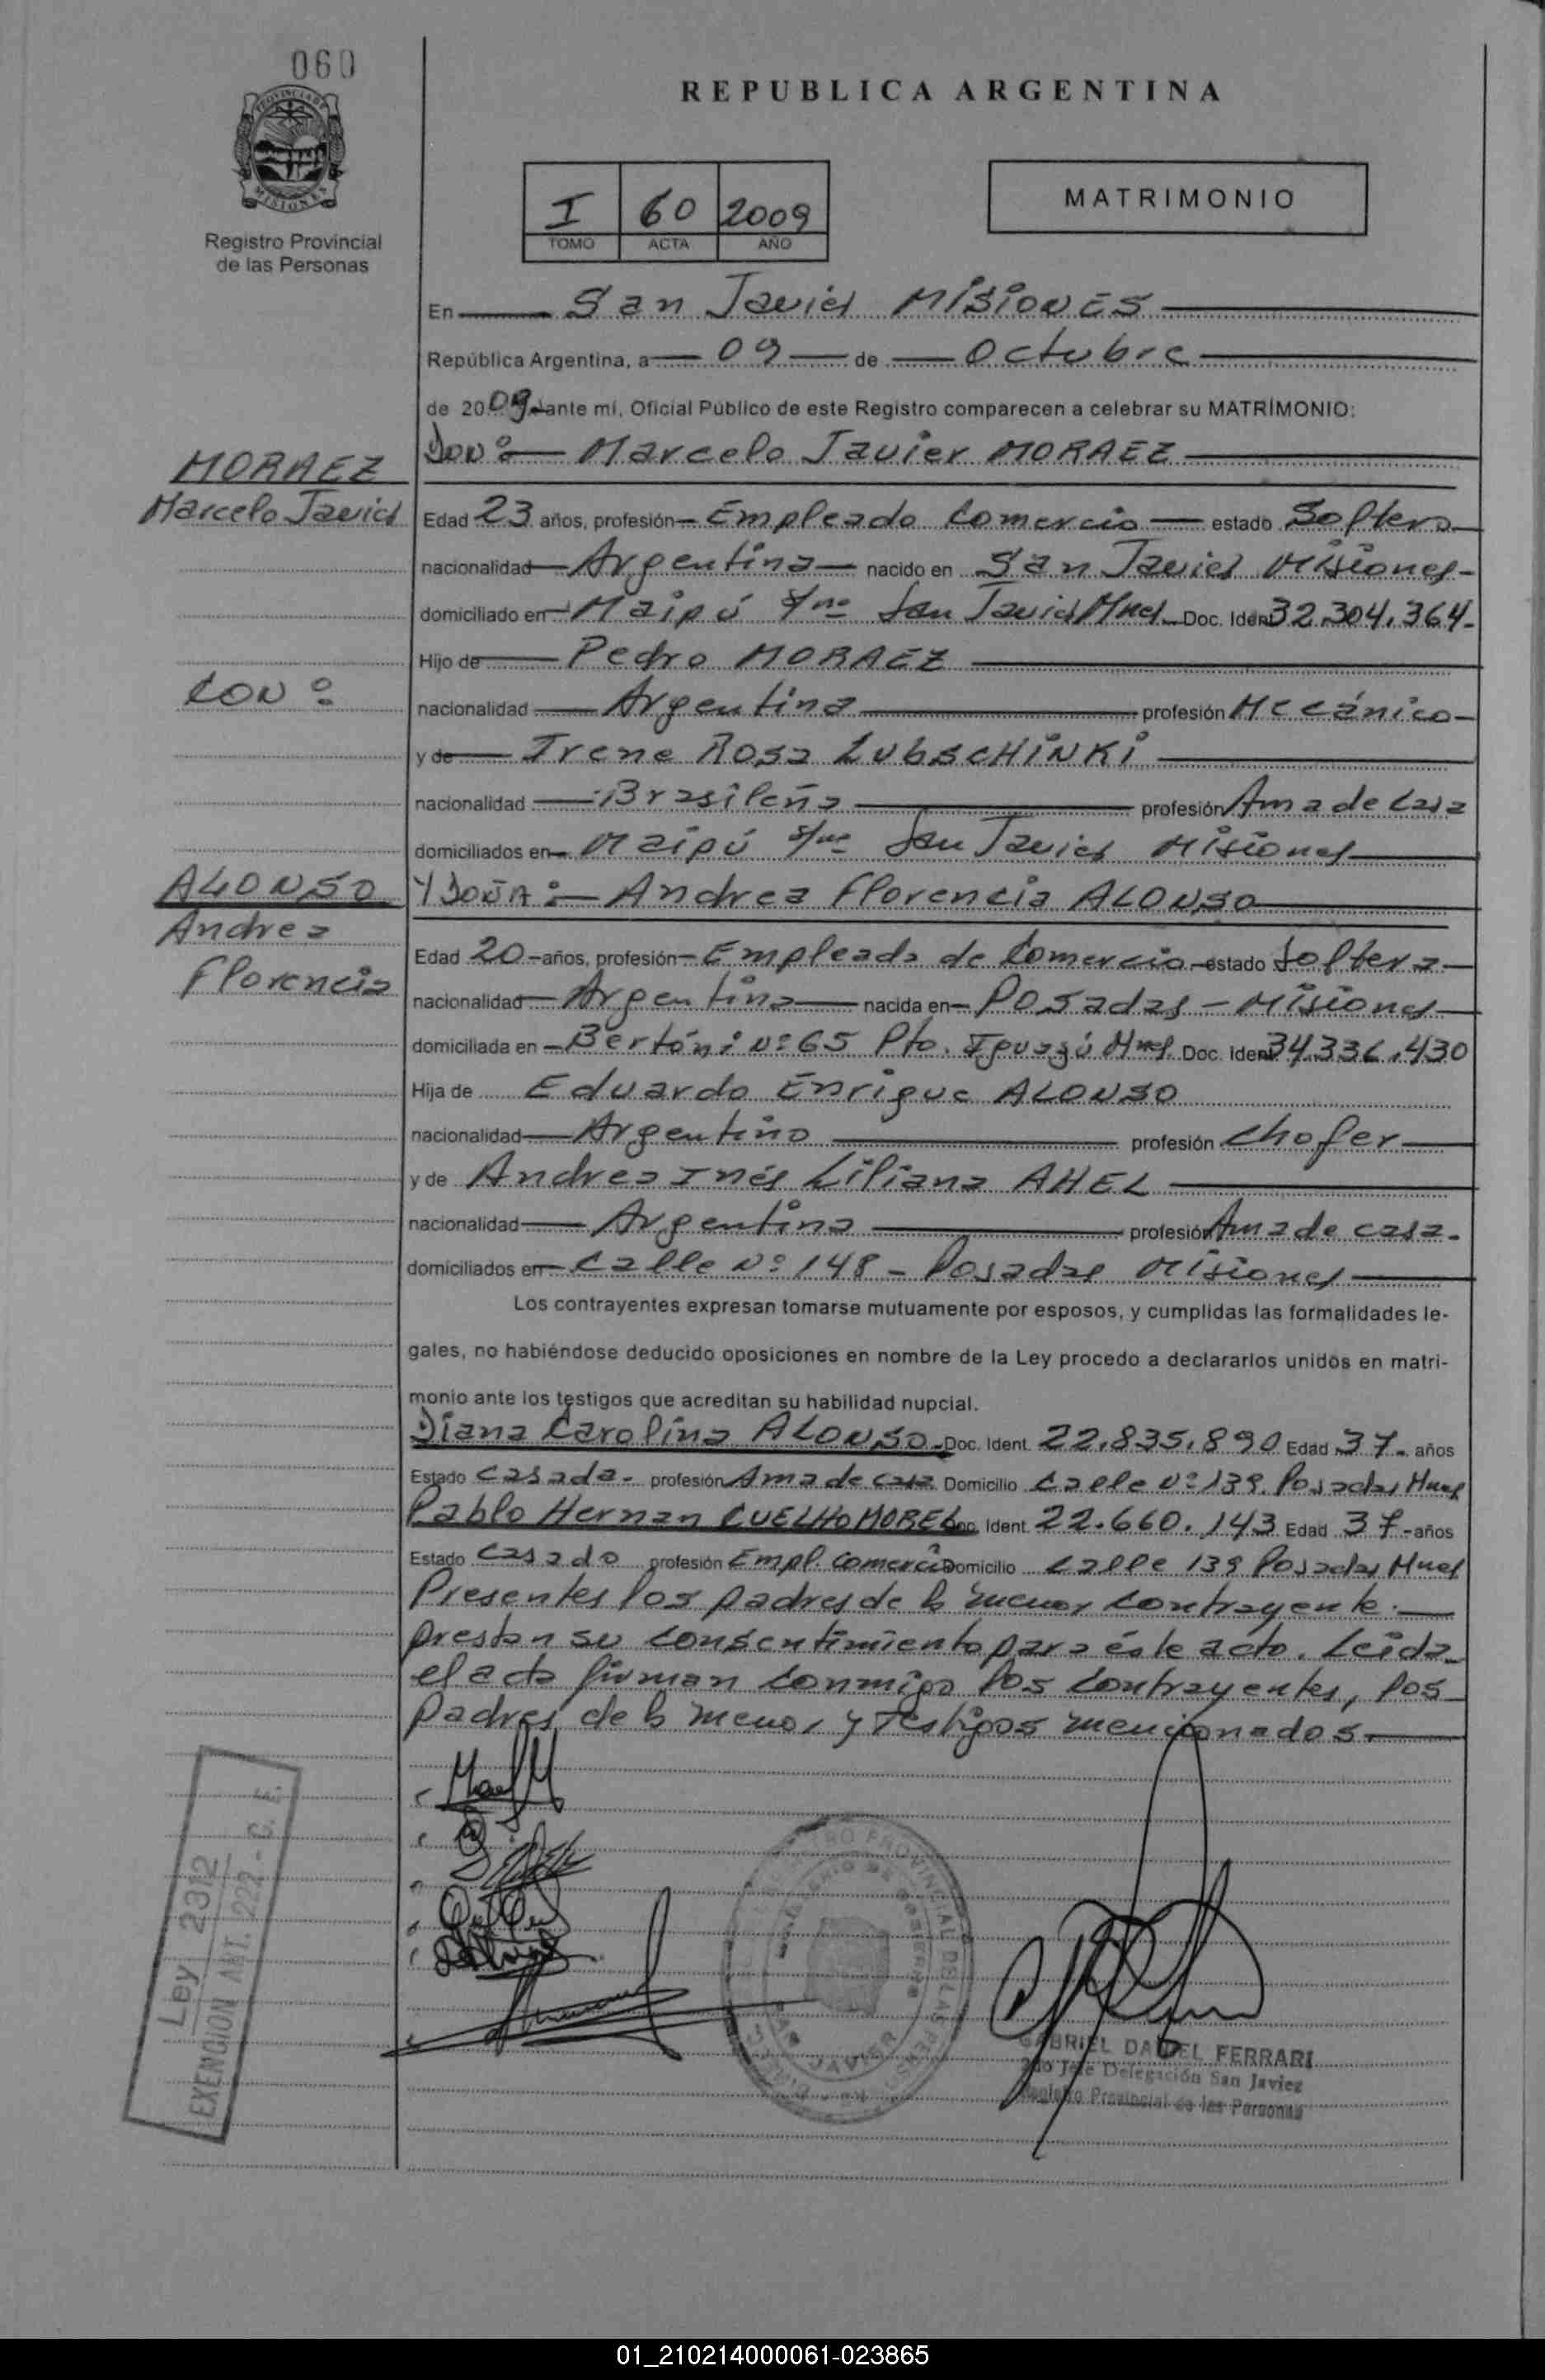 060
PROVINCIA DE
MISIONES
Registro Provincial
de las Personas
REPUBLICA ARGENTINA
I 60 2009
TOMO ACTA AÑO
MATRIMONIO
En San Javier MISIONES
República Argentina, a 09 de Octubre
de 2009 ante mí, Oficial Público de este Registro comparecen a celebrar su MATRIMONIO:
Don: Marcelo Javier MORAEZ
MORAEZ
Marcelo Javier
Edad 23 años, profesión Empleado Comercio estado Soltero
nacionalidad Argentina nacido en San Javier Misiones
domiciliado en Maipú s/nº San Javier Mnes Doc. Ident 32.304.364
Hijo de Pedro MORAEZ
CON:
nacionalidad Argentina profesión Mecánico
y de Irene Rosa LUBSCHINKI
nacionalidad Brasileña profesión Ama de Casa
domiciliados en Maipú s/nº San Javier Misiones
ALONSO
Andrea
Florencia
Y DOÑA: Andrea Florencia ALONSO
Edad 20 años, profesión Empleada de Comercio estado Soltera
nacionalidad Argentina nacida en Posadas - Misiones
domiciliada en Bertóni Nº 65 Pto. Iguazú Mnes. Doc. Ident 34.336.430
Hija de Eduardo Enrique ALONSO
nacionalidad Argentino profesión Chofer
y de Andrea Inés Liliana AHEL
nacionalidad Argentina profesión Ama de casa.
domiciliados en Calle Nº 148 - Posadas Misiones
Los contrayentes expresan tomarse mutuamente por esposos, y cumplidas las formalidades le-
gales, no habiéndose deducido oposiciones en nombre de la Ley procedo a declararlos unidos en matri-
monio ante los testigos que acreditan su habilidad nupcial.
Diana Carolina ALONSO Doc. Ident. 22.835.890 Edad 37 años
Estado Casada profesión Ama de casa Domicilio Calle Nº 139. Posadas Mnes
Pablo Hernan CUELHO MOREL Doc. Ident. 22.660.143 Edad 37 años
Estado Casado profesión Empl. Comercio Domicilio Calle 139 Posadas Mnes
Presentes los padres de la menor contrayente.
prestan su consentimiento para éste acto. Leida
el acta firman conmigo los contrayentes, los
padres de la menor y testigos mencionados.
Ley 2312
EXENCION ART. 222 - C. F.
SAN JAVIER
GABRIEL DANIEL FERRARI
2do Jefe Delegación San Javier
Registro Provincial de las Personas
01_210214000061-023865